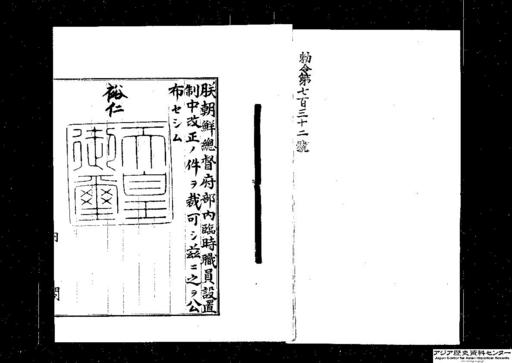 勅令第七百三十二號
朕朝鮮總督府部內臨時職員設置
制中改正ノ件ヲ裁可シ茲ニ之ヲ公
布セシム
裕仁
天皇
御璽
アジア歴史資料センター
Japan Center for Asian Historical Records